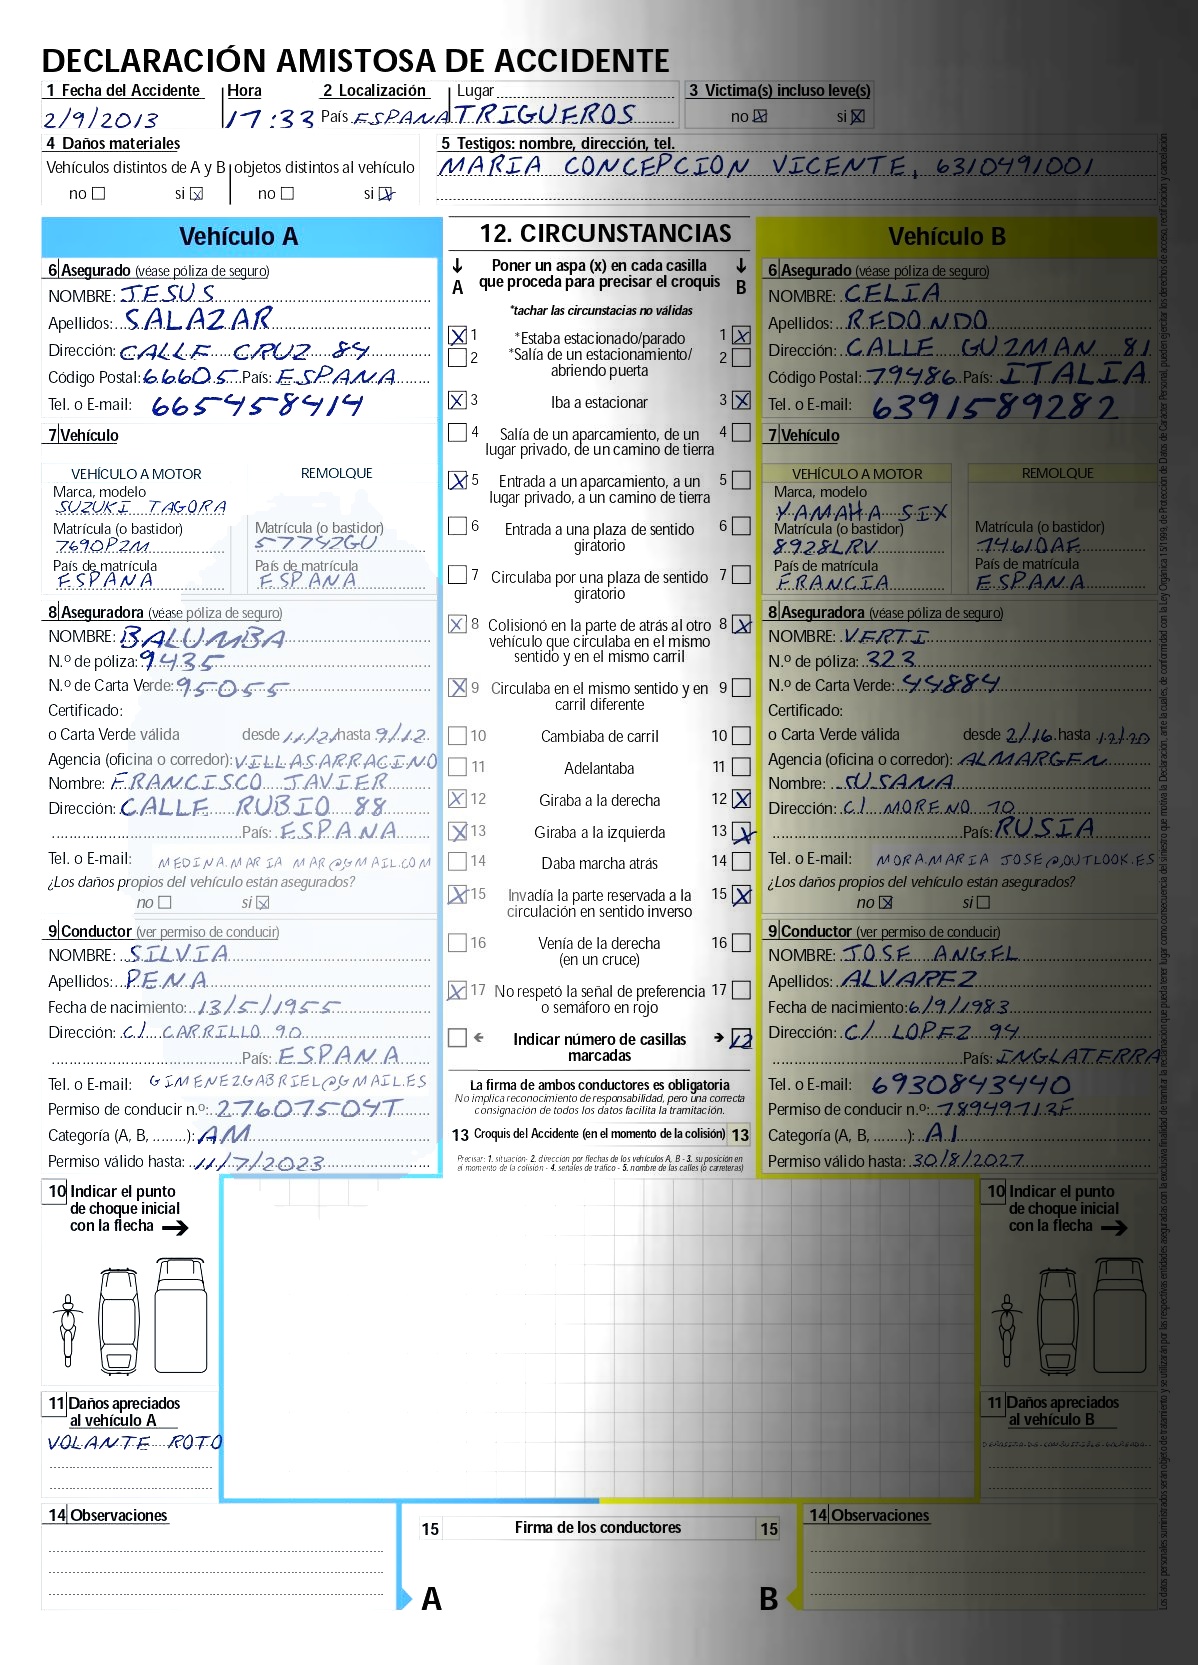 DECLARACIÓN AMISTOSA DE ACCIDENTE
1 Fecha del Accidente Hora 2 Localización Lugar 3 Victima(s) incluso leve(s)
2/9/2013 17:33 País ESPAÑA TRIGUEROS no si
4 Daños materiales 5 Testigos: nombre, dirección, tel.
Vehículos distintos de A y B objetos distintos al vehículo MARIA CONCEPCION VICENTE, 6310491001
no si no si
Vehículo A
6 Asegurado (véase póliza de seguro)
NOMBRE: JESUS
Apellidos: SALAZAR
Dirección: CALLE CRUZ 84
Código Postal: 66605 País: ESPAÑA
Tel. o E-mail: 665458414
7 Vehículo
VEHÍCULO A MOTOR REMOLQUE
Marca, modelo
SUZUKI TAGORA
Matrícula (o bastidor) Matrícula (o bastidor)
7690PZM 57752GU
País de matrícula País de matrícula
ESPAÑA ESPAÑA
8 Aseguradora (véase póliza de seguro)
NOMBRE: BALUMBA
N.º de póliza: 9435
N.º de Carta Verde: 95055
Certificado:
o Carta Verde válida desde 11/21 hasta 9/12
Agencia (oficina o corredor): VILLASARRACINO
Nombre: FRANCISCO JAVIER
Dirección: CALLE RUBIO 88
País: ESPAÑA
Tel. o E-mail: MEDINA.MARIA MAR@GMAIL.COM
¿Los daños propios del vehículo están asegurados?
no si
9 Conductor (ver permiso de conducir)
NOMBRE: SILVIA
Apellidos: PENA
Fecha de nacimiento: 13/5/1955
Dirección: C/ CARRILLO 90
País: ESPAÑA
Tel. o E-mail: GIMENEZGABRIEL@GMAIL.ES
Permiso de conducir n.º: 27607504T
Categoría (A, B, ........): AM
Permiso válido hasta: 11/7/2023
12. CIRCUNSTANCIAS
Poner un aspa (x) en cada casilla
A que proceda para precisar el croquis B
*tachar las circunstacias no válidas
1 *Estaba estacionado/parado 1
2 *Salía de un estacionamiento/ 2
abriendo puerta
3 Iba a estacionar 3
4 Salía de un aparcamiento, de un 4
lugar privado, de un camino de tierra
5 Entrada a un aparcamiento, a un 5
lugar privado, a un camino de tierra
6 Entrada a una plaza de sentido 6
giratorio
7 Circulaba por una plaza de sentido 7
giratorio
8 Colisionó en la parte de atrás al otro 8
vehículo que circulaba en el mismo
sentido y en el mismo carril
9 Circulaba en el mismo sentido y en 9
carril diferente
10 Cambiaba de carril 10
11 Adelantaba 11
12 Giraba a la derecha 12
13 Giraba a la izquierda 13
14 Daba marcha atrás 14
15 Invadía la parte reservada a la 15
circulación en sentido inverso
16 Venía de la derecha 16
(en un cruce)
17 No respetó la señal de preferencia 17
o semáforo en rojo
Indicar número de casillas 12
marcadas
La firma de ambos conductores es obligatoria
No implica reconocimiento de responsabilidad, pero una correcta
consignacion de todos los datos facilita la tramitación.
13 Croquis del Accidente (en el momento de la colisión) 13
Precisar: 1. situación- 2. direccion por flechas de los vehículos A, B - 3. su posición en
el momento de la colisión - 4. señales de tráfico - 5. nombre de las calles (o carreteras)
Vehículo B
6 Asegurado (véase póliza de seguro)
NOMBRE: CELIA
Apellidos: REDONDO
Dirección: CALLE GUZMAN 81
Código Postal: 79486 País: ITALIA
Tel. o E-mail: 6391589282
7 Vehículo
VEHÍCULO A MOTOR REMOLQUE
Marca, modelo
YAMAHA SIX
Matrícula (o bastidor) Matrícula (o bastidor)
8928LRV 7461DAE
País de matrícula País de matrícula
FRANCIA ESPAÑA
8 Aseguradora (véase póliza de seguro)
NOMBRE: VERTI
N.º de póliza: 323
N.º de Carta Verde: 44884
Certificado:
o Carta Verde válida desde 2/16 hasta 12/20
Agencia (oficina o corredor): ALMARGEN
Nombre: SUSANA
Dirección: C/ MORENO 70
País: RUSIA
Tel. o E-mail: MORA.MARIA JOSE@OUTLOOK.ES
¿Los daños propios del vehículo están asegurados?
no si
9 Conductor (ver permiso de conducir)
NOMBRE: JOSE ANGEL
Apellidos: ALVAREZ
Fecha de nacimiento: 6/9/1983
Dirección: C/ LOPEZ 94
País: INGLATERRA
Tel. o E-mail: 6930843440
Permiso de conducir n.º: 78949713F
Categoría (A, B, ........): A1
Permiso válido hasta: 30/8/2027
10 Indicar el punto
de choque inicial
con la flecha
11 Daños apreciados
al vehículo A
VOLANTE ROTO
10 Indicar el punto
de choque inicial
con la flecha
11 Daños apreciados
al vehículo B
14 Observaciones
15 Firma de los conductores 15
A B
14 Observaciones